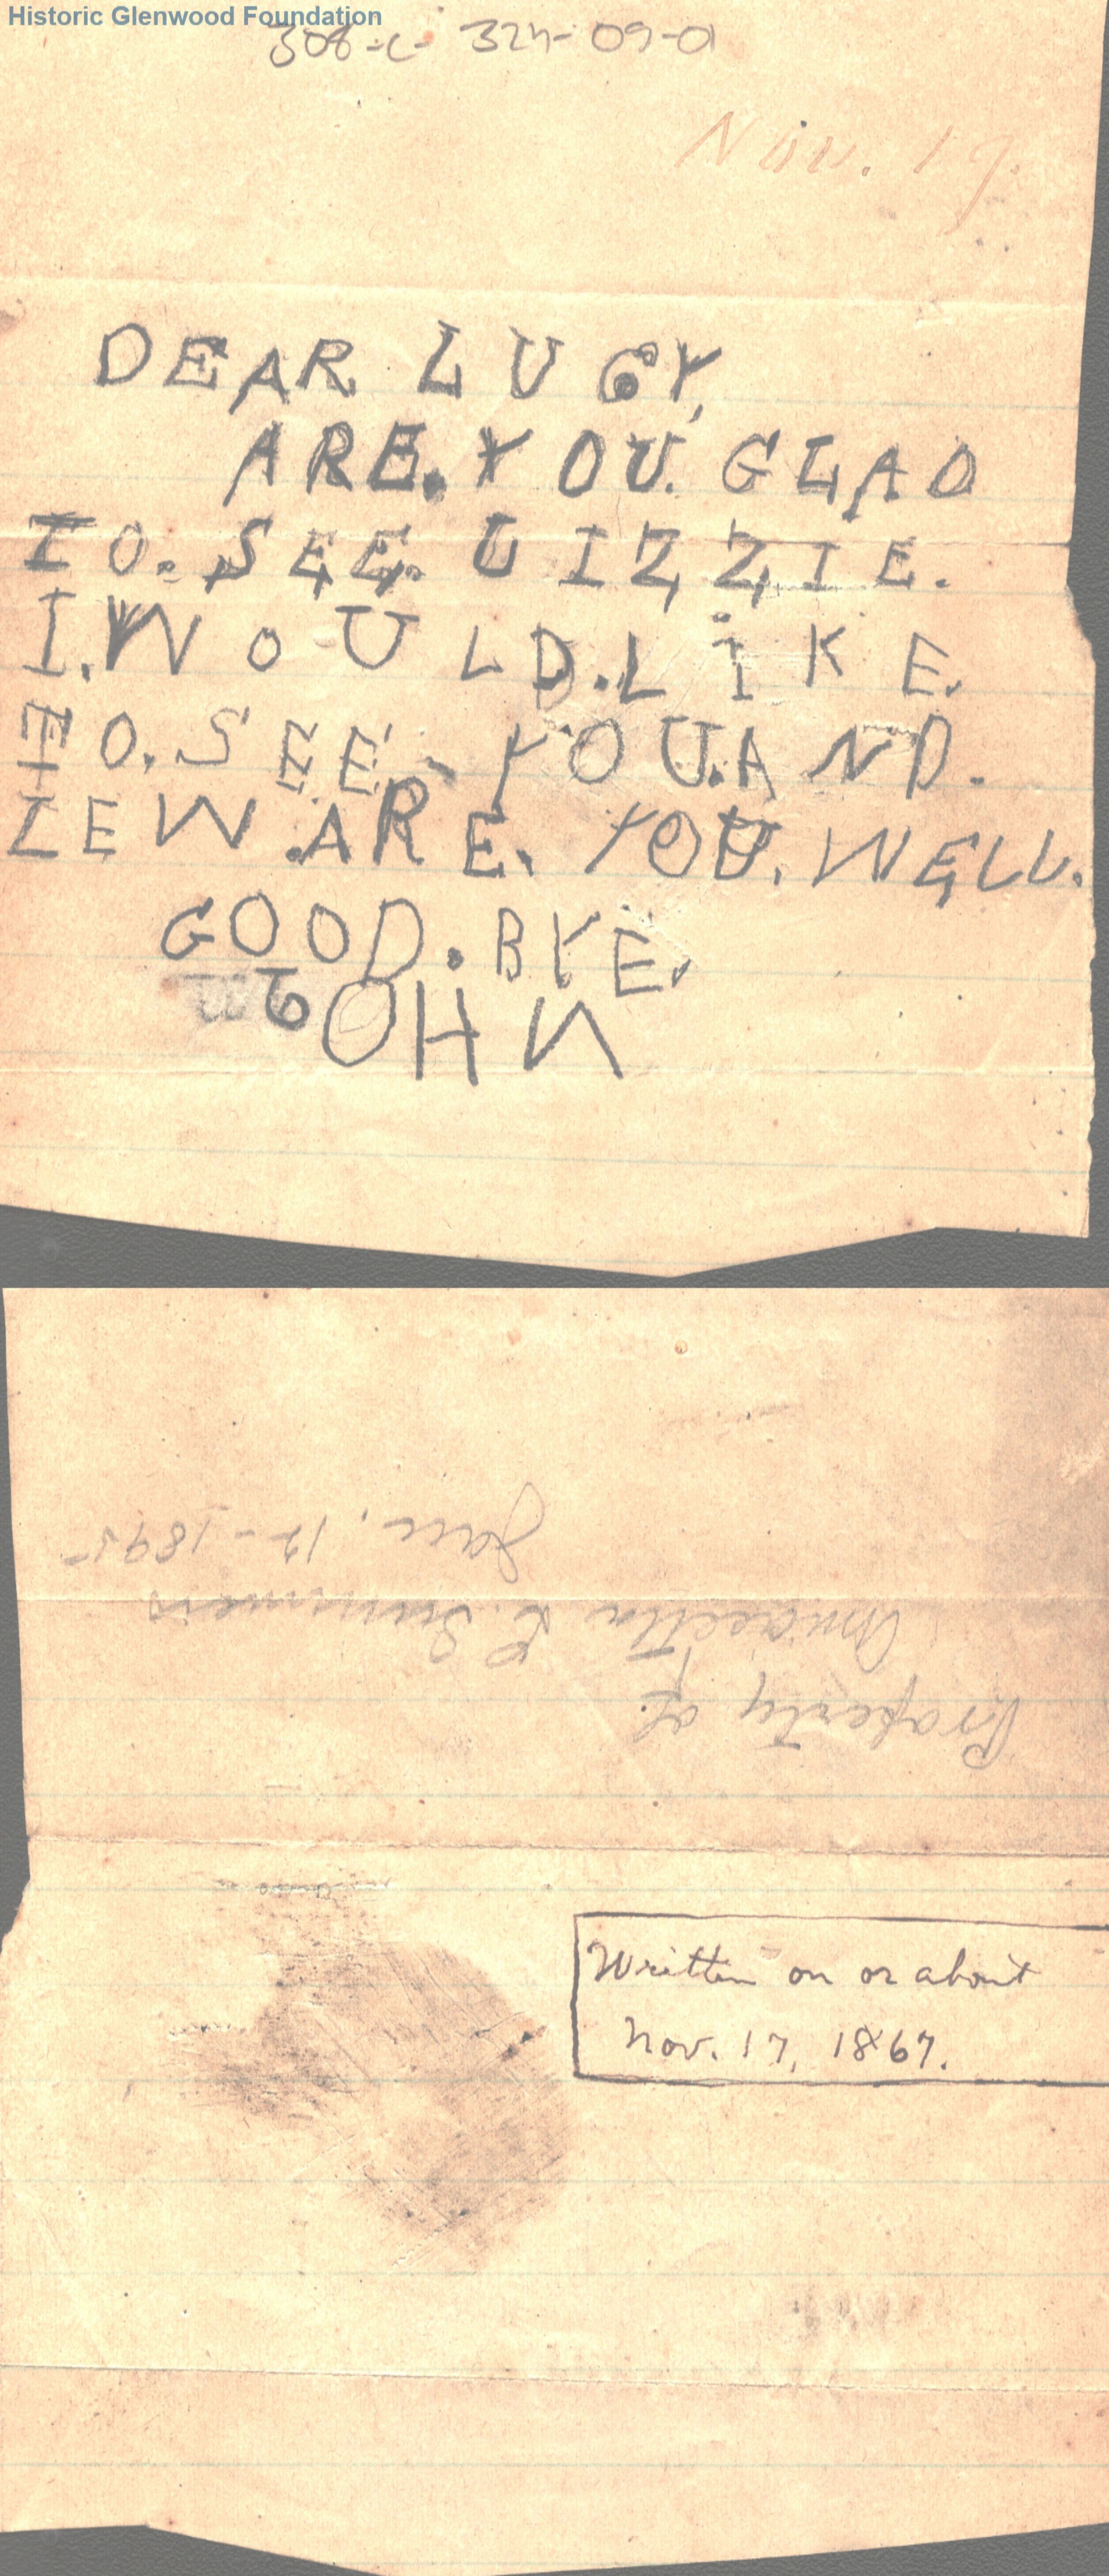 Historic Glenwood Foundation
308-c- 324-09-01
Nov. 17.
DEAR LUCY,
ARE. YOU. GLAD
TO. SEE. LIZZIE.
I. WOULD. LIKE.
TO. SEE. YOU. AND.
LEW. ARE. YOU. WELL.
GOOD. BYE.
JOHN
Jan. 12-1895
L. Summers
Property of
Written on or about
Nov. 17, 1867.